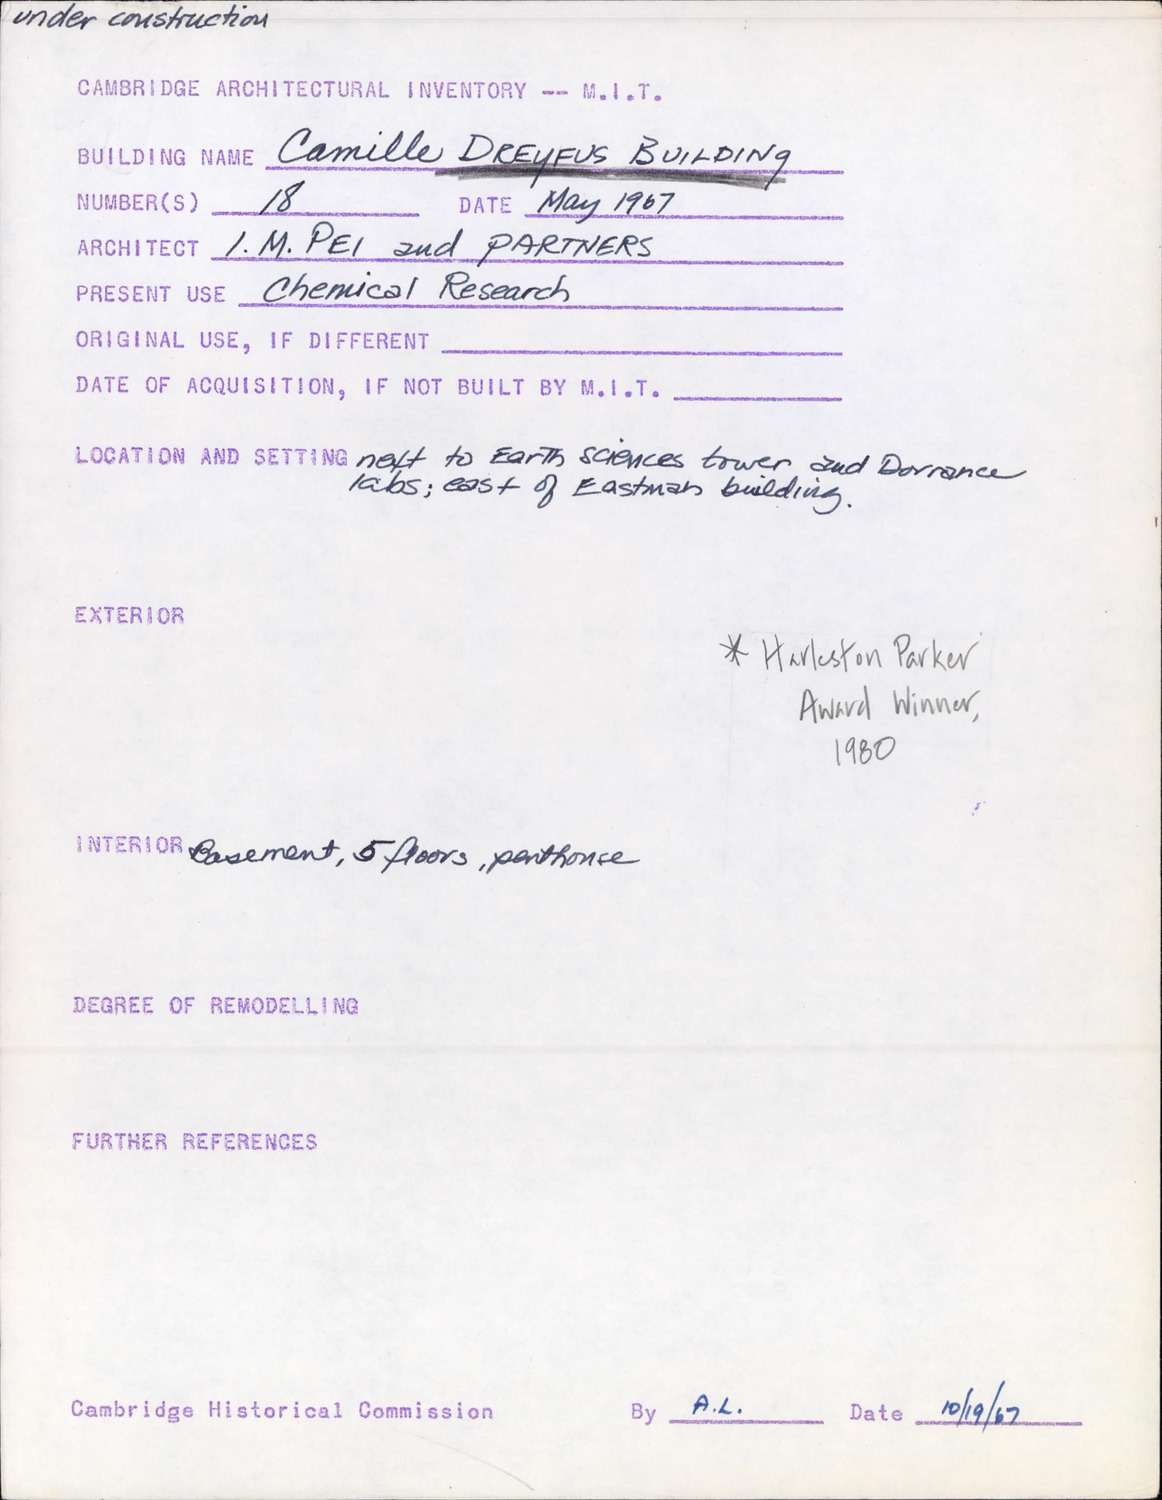 under construction
CAMBRIDGE ARCHITECTURAL INVENTORY -- M.I.T.
BUILDING NAME Camille DREYFUS BUILDING
NUMBER(S) 18 DATE May 1967
ARCHITECT I.M. PEI and PARTNERS
PRESENT USE Chemical Research
ORIGINAL USE, IF DIFFERENT
DATE OF ACQUISITION, IF NOT BUILT BY M.I.T.
LOCATION AND SETTING next to Earth sciences tower and Dorrance
labs; east of Eastman building.
EXTERIOR
* Harleston Parker
Award Winner,
1980
INTERIOR Basement, 5 floors, penthouse
DEGREE OF REMODELLING
FURTHER REFERENCES
Cambridge Historical Commission By A.L. Date 10/19/67